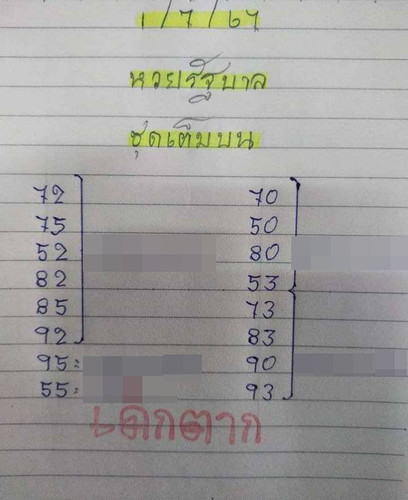 1/7/67
หวยรัฐบาล
ชุดเต็มบน
72 70
75 50
52 80
82 53
85 73
92 83
95: 90
55: 93
เด็กตาก